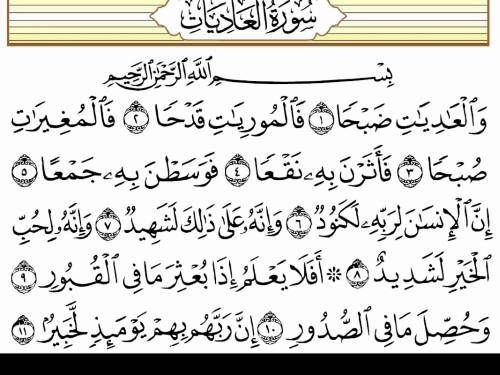 سُورَةُ الْعَادِيَاتِ
بِسْمِ ٱللَّهِ ٱلرَّحْمَٰنِ ٱلرَّحِيمِ
وَٱلْعَادِيَاتِ ضَبْحًا ١ فَٱلْمُورِيَاتِ قَدْحًا ٢ فَٱلْمُغِيرَاتِ
صُبْحًا ٣ فَأَثَرْنَ بِهِۦ نَقْعًا ٤ فَوَسَطْنَ بِهِۦ جَمْعًا ٥
إِنَّ ٱلْإِنسَانَ لِرَبِّهِۦ لَكَنُودٌ ٦ وَإِنَّهُۥ عَلَىٰ ذَالِكَ لَشَهِيدٌ ٧ وَإِنَّهُۥ لِحُبِّ
ٱلْخَيْرِ لَشَدِيدٌ ٨ ۞ أَفَلَا يَعْلَمُ إِذَا بُعْثِرَ مَا فِى ٱلْقُبُورِ ٩
وَحُصِّلَ مَا فِى ٱلصُّدُورِ ١٠ إِنَّ رَبَّهُم بِهِمْ يَوْمَئِذٍ لَّخَبِيرٌۢ ١١